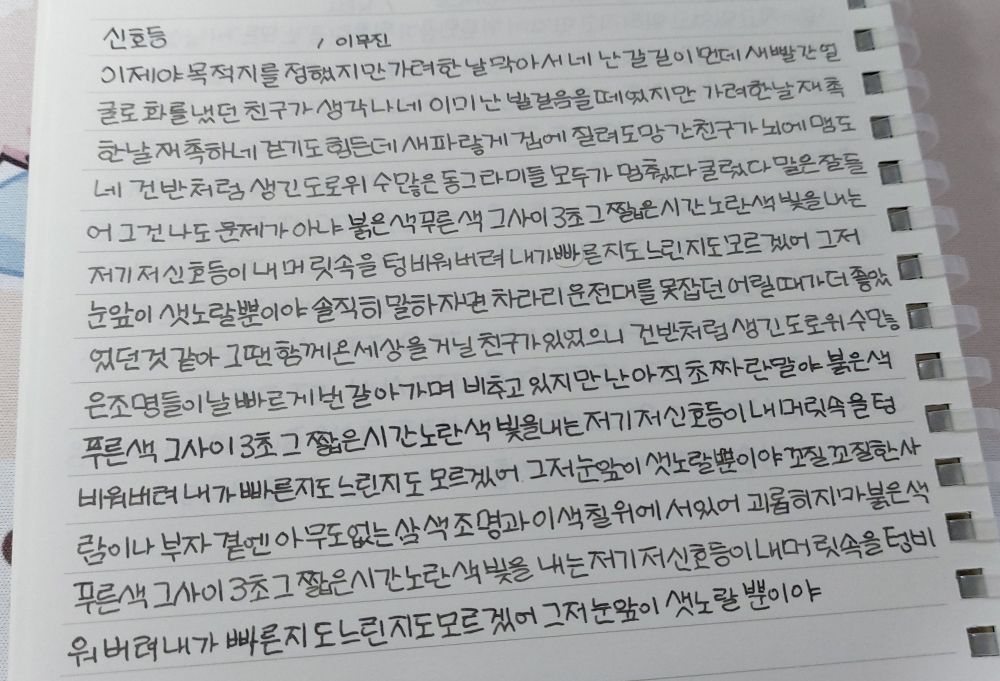 신호등 / 이무진
이제야 목적지를 정했지만 가려한 날 막아서네 난 갈 길이 먼데 새빨간 얼
굴로 화를 냈던 친구가 생각나네 이미 난 발걸음을 떼었지만 가려한 날 재촉
한 날 재촉하네 걷기도 힘든데 새파랗게 겁에 질려 도망간 친구가 뇌에 맴도
네 건반처럼 생긴 도로 위 수많은 동그라미들 모두가 멈췄다 굴렀다 말은 잘 들
어 그건 나도 문제가 아냐 붉은색 푸른색 그 사이 3초 그 짧은 시간 노란색 빛을 내는
저기 저 신호등이 내 머릿속을 텅 비워버려 내가 빠른지도 느린지도 모르겠어 그저
눈앞이 샛노랄 뿐이야 솔직히 말하자면 차라리 운전대를 못 잡던 어릴 때가 더 좋았
었던 것 같아 그땐 함께 온 세상을 거닐 친구가 있었으니 건반처럼 생긴 도로 위 수많
은 조명들이 날 빠르게 번갈아 가며 비추고 있지만 난 아직 초짜란 말야 붉은색
푸른색 그 사이 3초 그 짧은 시간 노란색 빛을 내는 저기 저 신호등이 내 머릿속을 텅
비워버려 내가 빠른지도 느린지도 모르겠어 그저 눈앞이 샛노랄 뿐이야 꼬질꼬질한 사
람이나 부자 곁엔 아무도 없는 삼색 조명과 이색 칠 위에 서 있어 괴롭히지 마 붉은색
푸른색 그 사이 3초 그 짧은 시간 노란색 빛을 내는 저기 저 신호등이 내 머릿속을 텅 비
워버려 내가 빠른지도 느린지도 모르겠어 그저 눈앞이 샛노랄 뿐이야